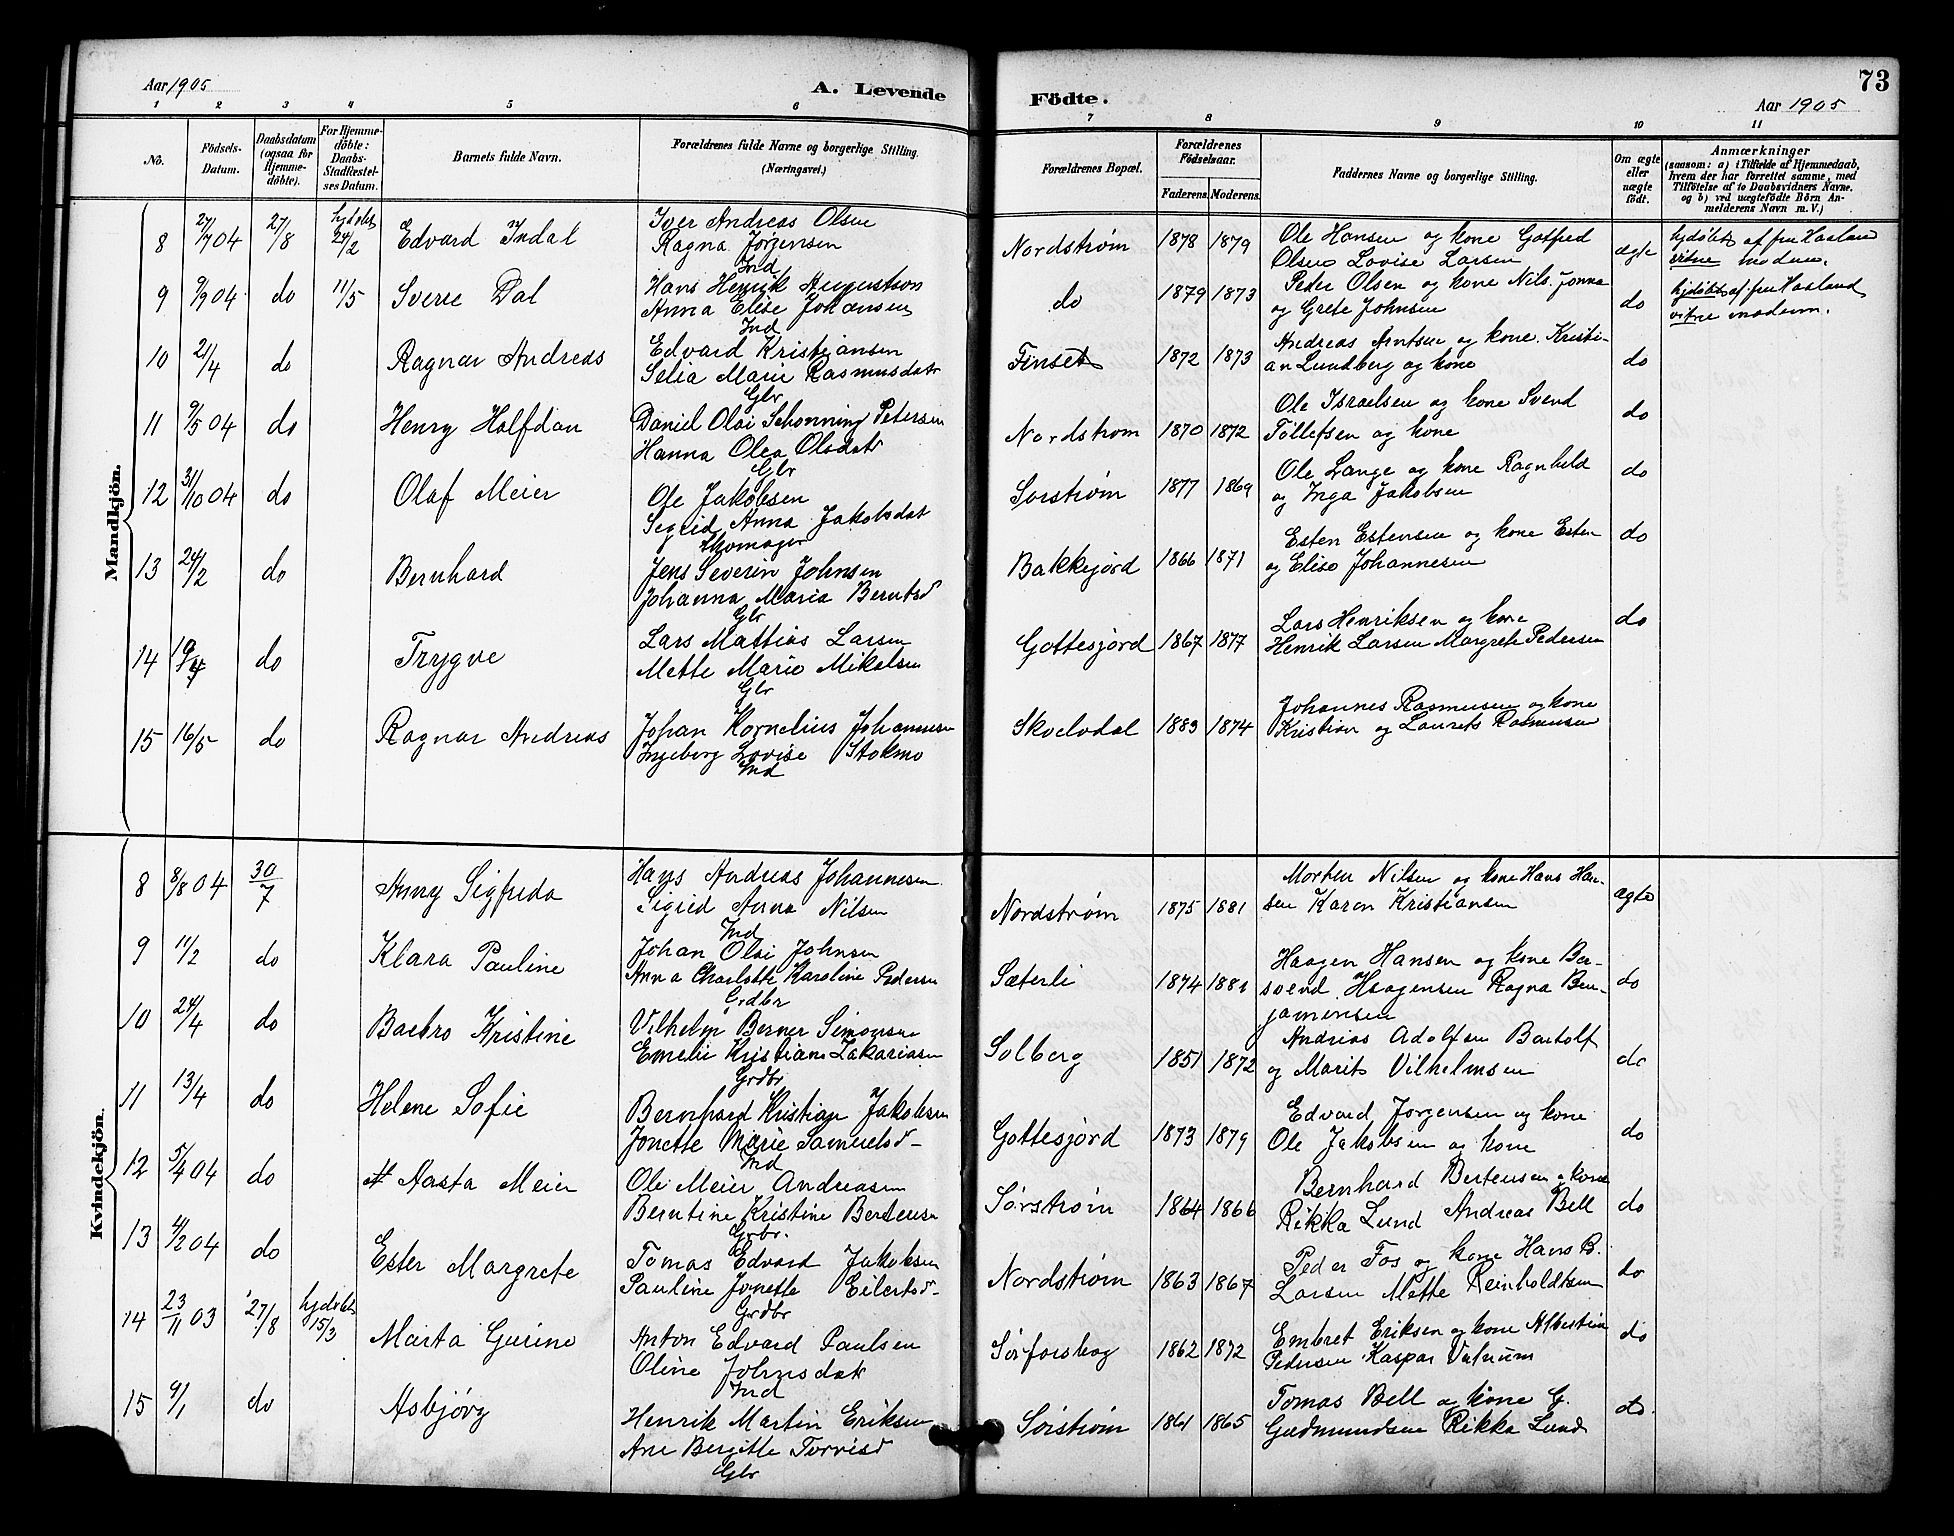 Aar 1905
A. Levende
Födte.
73
Aar 1905
1 2 3 4 5 6 7 8 9 10 11
No.
Födsels-
Datum.
Daabsdatum
(ogsaa for
Hjemme-
döbte).
For Hjemme-
döbte:
Daabs-
Stadfæstel-
ses Datum.
Barnets fulde Navn.
Forældrenes fulde Navne og borgerlige Stilling.
(Næringsvei.)
Forældrenes Bopæl.
Forældrenes
Födselsaar.
Faderens. Moderens.
Faddernes Navne og borgerlige Stilling.
Om ægte
eller
uægte
født.
Anmærkninger
(saasom: a) i Tilfælde af Hjemmedaab,
hvem der har forrettet samme, med
Tilføielse af to Daabsvidners Navne.
og b) ved uægtefödte Börn An-
melderens Navn m. V.)
Mandkjön.
8 27/7 04 27/8 hjdøbt 24/2 Edvard Indal
Iver Andreas Olsen
Ragna Jørgensen
Ind
Nordstrøm 1878 1879
Ole Hansen og kone Gotfred
Olsen Lovise Larsen
ægte
hjdøbt af fru Haaland
vitne modern.
9 9/9 04 do 11/5 Sverre Dal
Hans Henrik Augustson
Anna Elise Johansen
Ind
do 1879 1873
Peder Olsen og kone Nils Jonna
og Grete Johnsen
do
hjdøbt af fru Haaland
vitne modern.
10 21/4 do Ragnar Andreas
Edvard Kristjansen
Selia Marie Rasmusdatr
Gbr
Finset 1872 1873
Andreas Arntsen og kone Kristi-
an Lundberg og kone
do
11 9/5 04 do Henry Halfdan
Daniel Olai Schonning Petersen
Hanna Olea Olsdatr
Gbr
Nordstrom 1870 1872
Ole Israelsen og kone Svend
Tollefsen og kone
do
12 31/10 04 do Olaf Meier
Ole Jakobsen
Sigrid Anna Jakobsdat
Skomager
Sørstrøm 1877 1869
Ole Lange og kone Ragnhild
og Inga Jakobsen
do
13 24/2 do Bernhard
Jens Severin Johnsen
Johanna Maria Berntsd
Gbr
Bakkejord 1866 1871
Esten Estensen og kone Esten
og Elise Johannesen
do
14 19/4 do Trygve
Lars Mattias Larsen
Mette Marie Mikalsen
Gbr
Gottesjord 1867 1877
Lars Henriksen og kone
Henrik Larsen Margrete Pedersen
do
15 16/5 do Ragnar Andreas
Johan Kornelius Johannesen
Ingeborg Lovise Stokmo
Ind
Skoelvdal 1883 1874
Johannes Rasmusen og kone
Kristian og Laurets Rasmusen
Kvindekjön.
8 8/8 04 30/7 Anny Sigfrida
Hans Andreas Johannesen
Sigrid Anna Nilsen
Ind
Nordstrøm 1875 1881
Morten Nilsen og kone Hans Han-
sen Karen Kristiansen
ægte
9 11/2 do Klara Pauline
Johan Olai Johnsen
Anna Charlotte Karoline Pedersen
Grdbr
Sæterli 1874 1881
Haagen Hansen og kone Ber-
svend Haagensen Ragna Ben-
jaminsen
do
10 24/4 do Barbro Kristine
Vilhelm Berner Simonsen
Emelie Kristiane Zakariasen
Grdbr
Solberg 1851 1872
Andrias Adolfsen Bartolf
og Marits Vilhelmsen
do
11 13/4 do Helene Sofie
Bernhard Kristian Jakobsen
Jonette Marie Samuelsd-
Ind
Gottesjord 1873 1879
Edvard Jorgensen og kone
Ole Jakobsen og kone
do
12 5/4 04 do Aasta Meier
Ole Meier Andreasen
Berntine Kristine Bertensn
Grbr.
Sørstrøm 1864 1866
Bernhard Bertensen o kone
Rikka Lund Andreas Bell
do
13 4/12 04 do Ester Margrete
Tomas Edvard Jakobsen
Pauline Jonette Eilertsd-
Grdbr
Nordstrøm 1863 1867
Peder Fos og kone Hans B.
Larsen Mette Reinholdtsen
do
14 23/11 03 27/8 hjdobt 15/3 Marta Gurine
Anton Edvard Paulsen
Oline Johnsdatr
Ind
Sørforsbog 1862 1872
Embret Eriksen og kone Albertine
Pedersen Kaspar
do
15 9/1 do Asbjörg
Henrik Martin Eriksen
Ane Bergitte Torrisd
Gbr
Sorstrøm 1861 1865
Tomas Bell og kone G.
Gudmundsen Rikka Lund
do